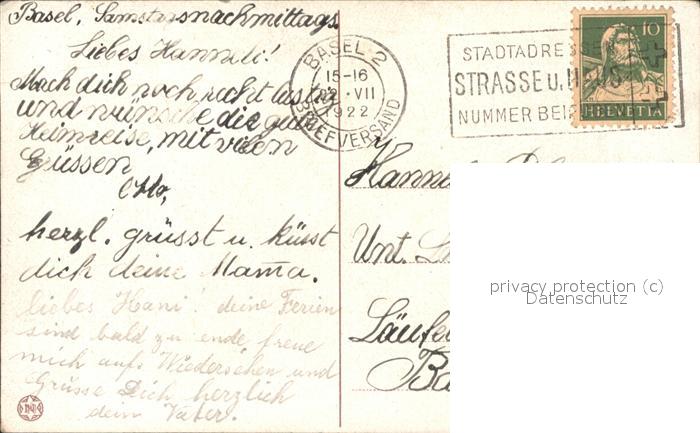 Basel, Samstagnachmittags.
Liebes Hanneli!
Mach dich noch recht lustig
und wünsche die gute
Heimreise, mit vielen
Grüssen
Otto,
herzl. grüsst u. küsst
dich deine Mama.
liebes Hani! deine Ferien
sind bald zu ende freue
mich aufs Wiedersehen und
Grüsse Dich herzlich
dein Vater.
BASEL 2
15-16
22. VII
1922
BRIEFVERSAND
STADTADRESSEN
STRASSE U. HAUS
NUMMER BEI
10
HELVETIA
Hann
Unt.
Läufel
Ba
privacy protection (c)
Datenschutz